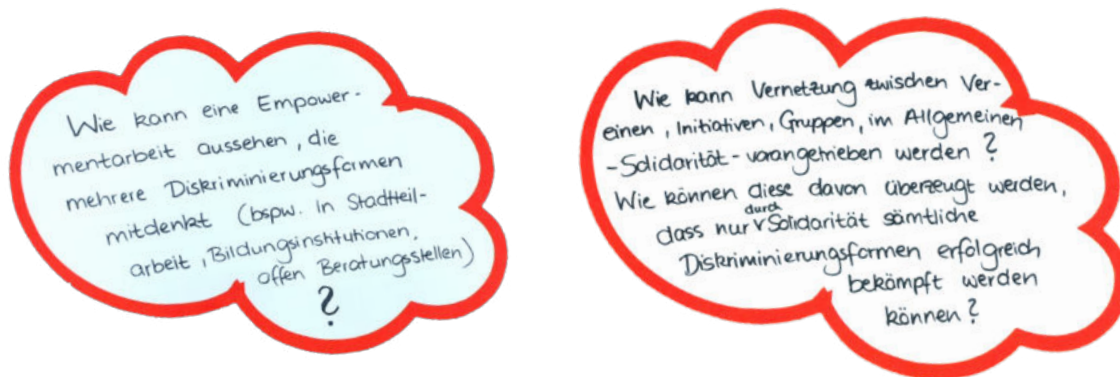 Wie kann eine Empower-
mentarbeit aussehen, die
mehrere Diskriminierungsformen
mitdenkt (bspw. in Stadtteil-
arbeit, Bildungsinstitutionen,
offen Beratungsstellen)
?
Wie kann Vernetzung zwischen Ver-
einen, Initiativen, Gruppen, im Allgemeinen
-Solidarität- vorangetrieben werden?
Wie können diese davon überzeugt werden,
dass nur durch Solidarität sämtliche
Diskriminierungsformen erfolgreich
bekämpft werden
können?